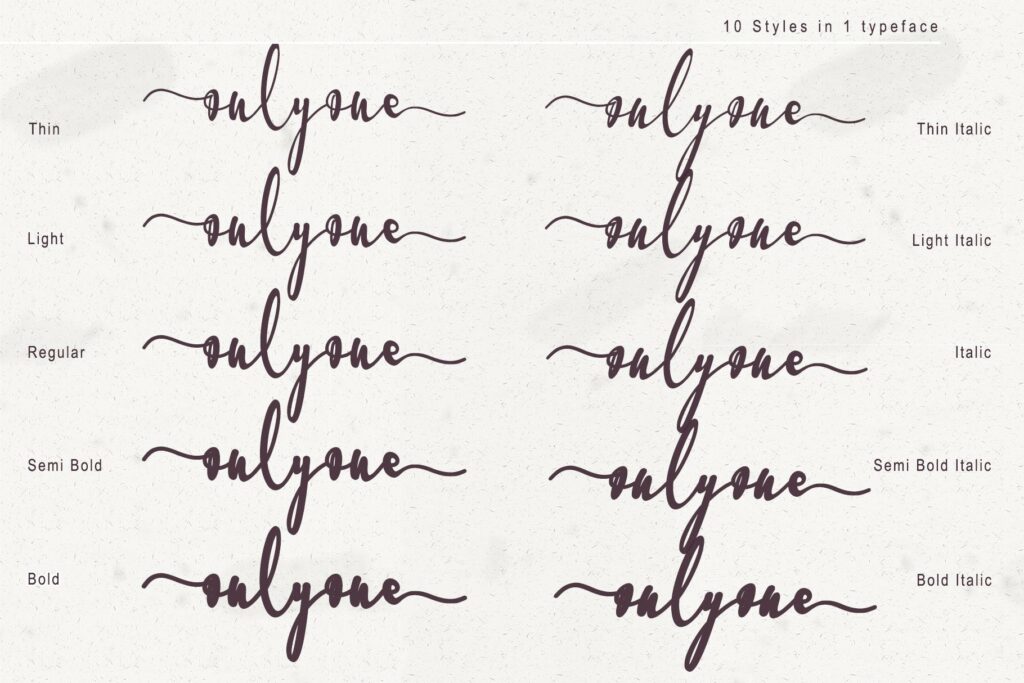 10 Styles in 1 typeface
Thin
onlyone
onlyone
Thin Italic
Light
onlyone
onlyone
Light Italic
Regular
onlyone
onlyone
Italic
Semi Bold
onlyone
onlyone
Semi Bold Italic
Bold
onlyone
onlyone
Bold Italic